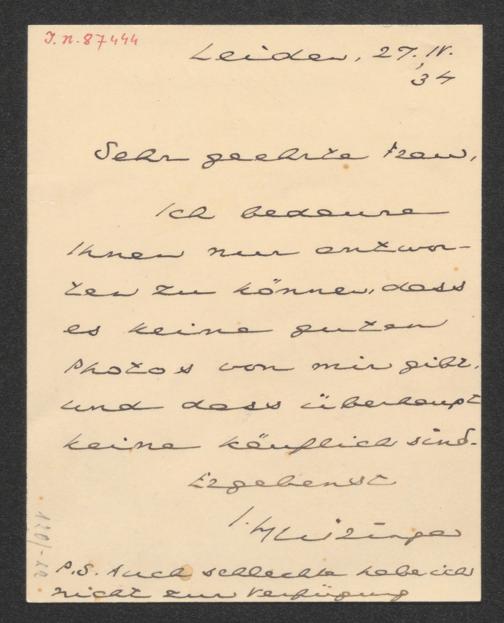 I.N. 87444
Leiden, 27. IV.
'34
Sehr geehrte Frau,
Ich bedaure
Ihnen nur antwor-
ten zu können, dass
es keine guten
Photos von mir gibt,
und dass überhaupt
keine käuflich sind.
Ergebenst
J. Huizinga
P.S. Auch schlechte habe ich
nicht zur Verfügung